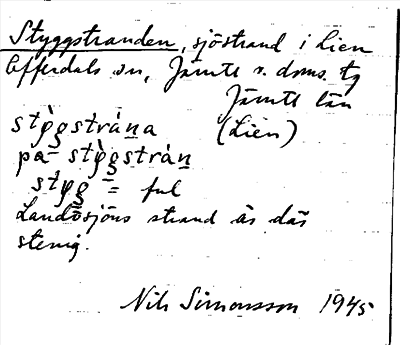 Styggstranden, sjöstrand i Lien
Offerdals sn, Jämtl. n. doms. tg
Jämtl län
stỳgstrána (Lien)
på stỳgstrán
styg = ful
Landösjöns strand är där
stenig.
Nils Simonsson 1945